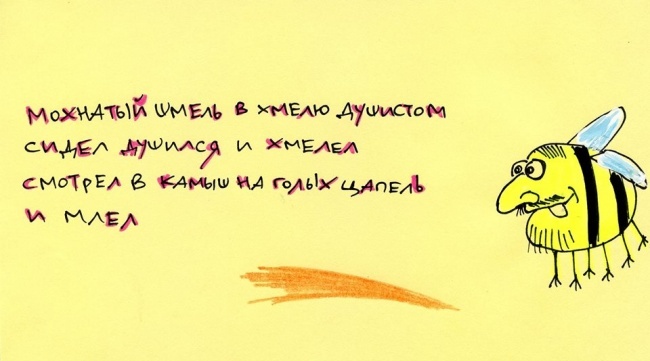 мохнатый шмель в хмелю душистом
сидел душился и хмелел
смотрел в камыш на голых цапель
и млел